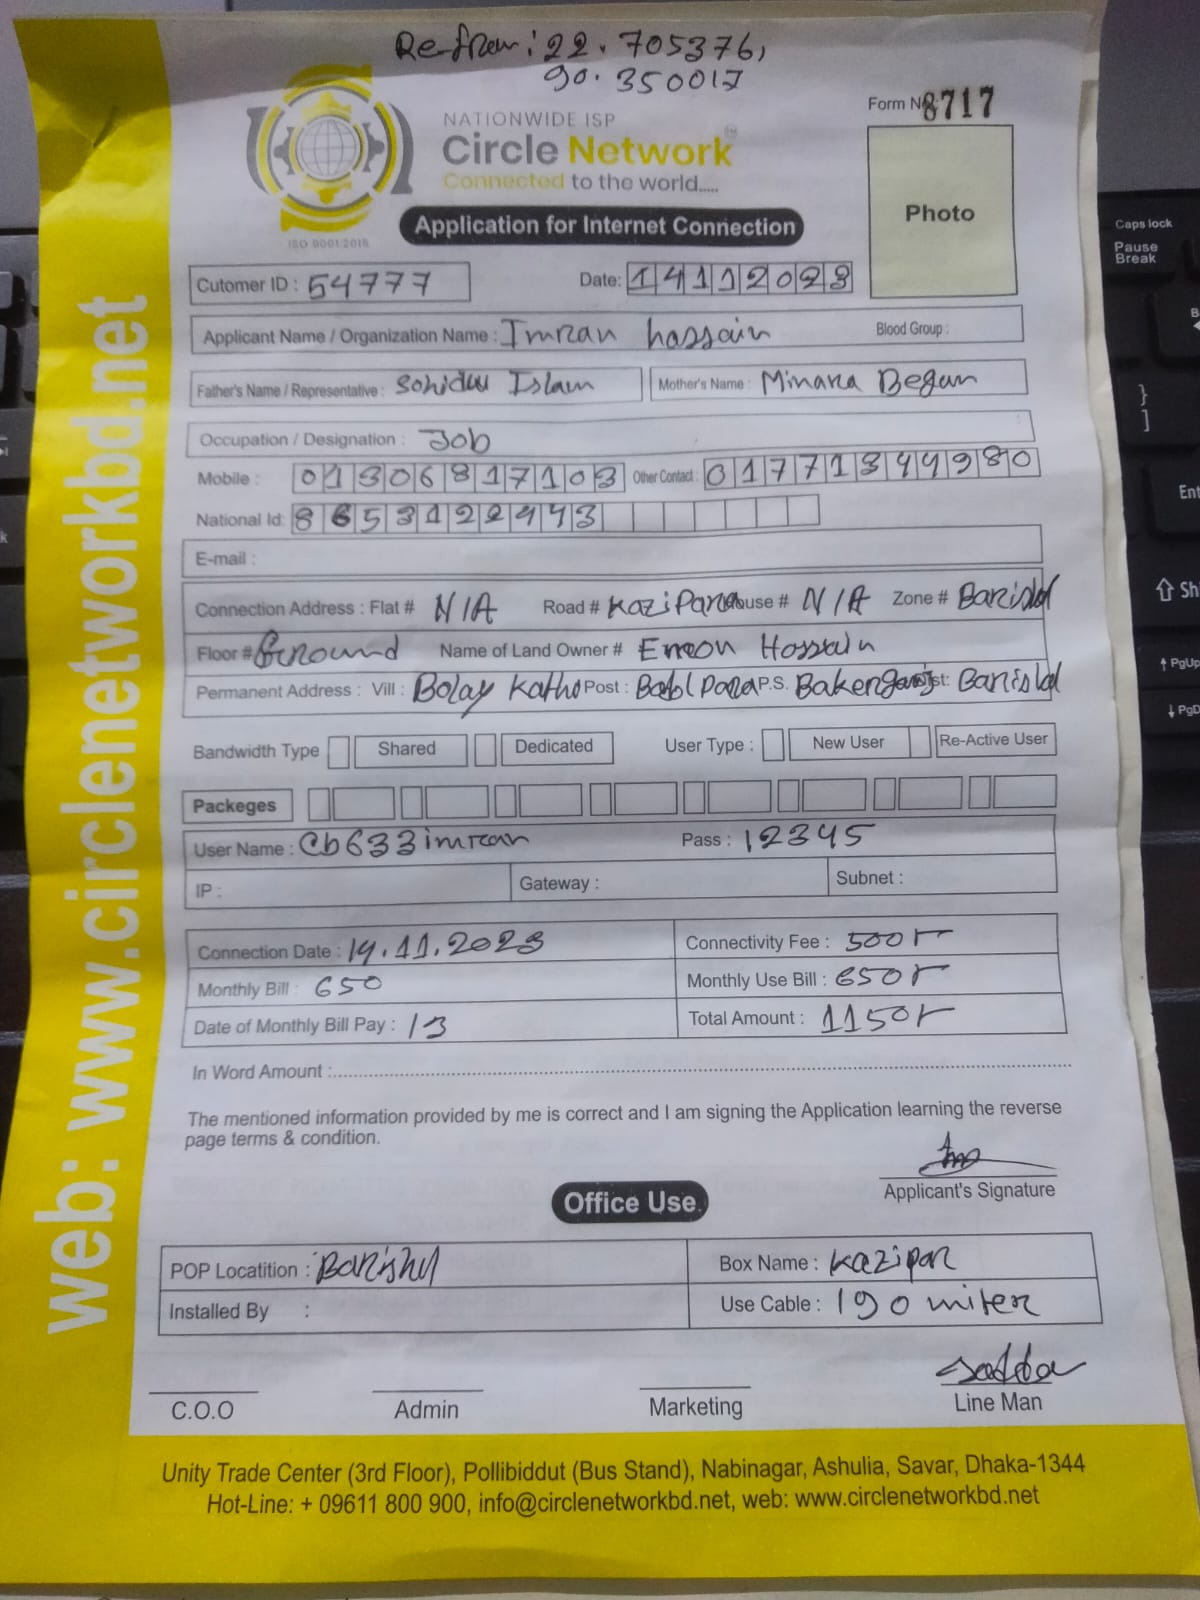 Re-fren: 22.705376,
90.350017
NATIONWIDE ISP
Form No 8717
Circle Network
Connected to the world.....
ISO 9001:2015
Application for Internet Connection
Photo
Cutomer ID : 54777 Date: 14112023
Applicant Name / Organization Name : Imran hossain Blood Group :
Father's Name / Representative : Sohidul Islam Mother's Name : Minara Begum
Occupation / Designation : Job
Mobile : 01306817103 Other Contact : 01771344980
National Id: 8653122443
E-mail :
Connection Address : Flat # N/A Road # Kazipara House # N/A Zone # Barishal
Floor # Ground Name of Land Owner # Emon Hossain
Permanent Address : Vill : Bolay Katho Post : P.S. Bakergonj Dist: Barishal
Bandwidth Type Shared Dedicated User Type : New User Re-Active User
Packeges
User Name : cb633imran Pass : 12345
IP : Gateway : Subnet :
Connection Date : 14.11.2023 Connectivity Fee : 500/-
Monthly Bill : 650 Monthly Use Bill : 650/-
Date of Monthly Bill Pay : 13 Total Amount : 1150/-
In Word Amount :
The mentioned information provided by me is correct and I am signing the Application learning the reverse
page terms & condition.
Applicant's Signature
Office Use.
POP Locatition : Barishal Box Name : Kazipar
Installed By : Use Cable : 190 miter
C.O.O Admin Marketing Line Man
Unity Trade Center (3rd Floor), Pollibiddut (Bus Stand), Nabinagar, Ashulia, Savar, Dhaka-1344
Hot-Line: + 09611 800 900, info@circlenetworkbd.net, web: www.circlenetworkbd.net
web: www.circlenetworkbd.net
Caps lock
Pause
Break